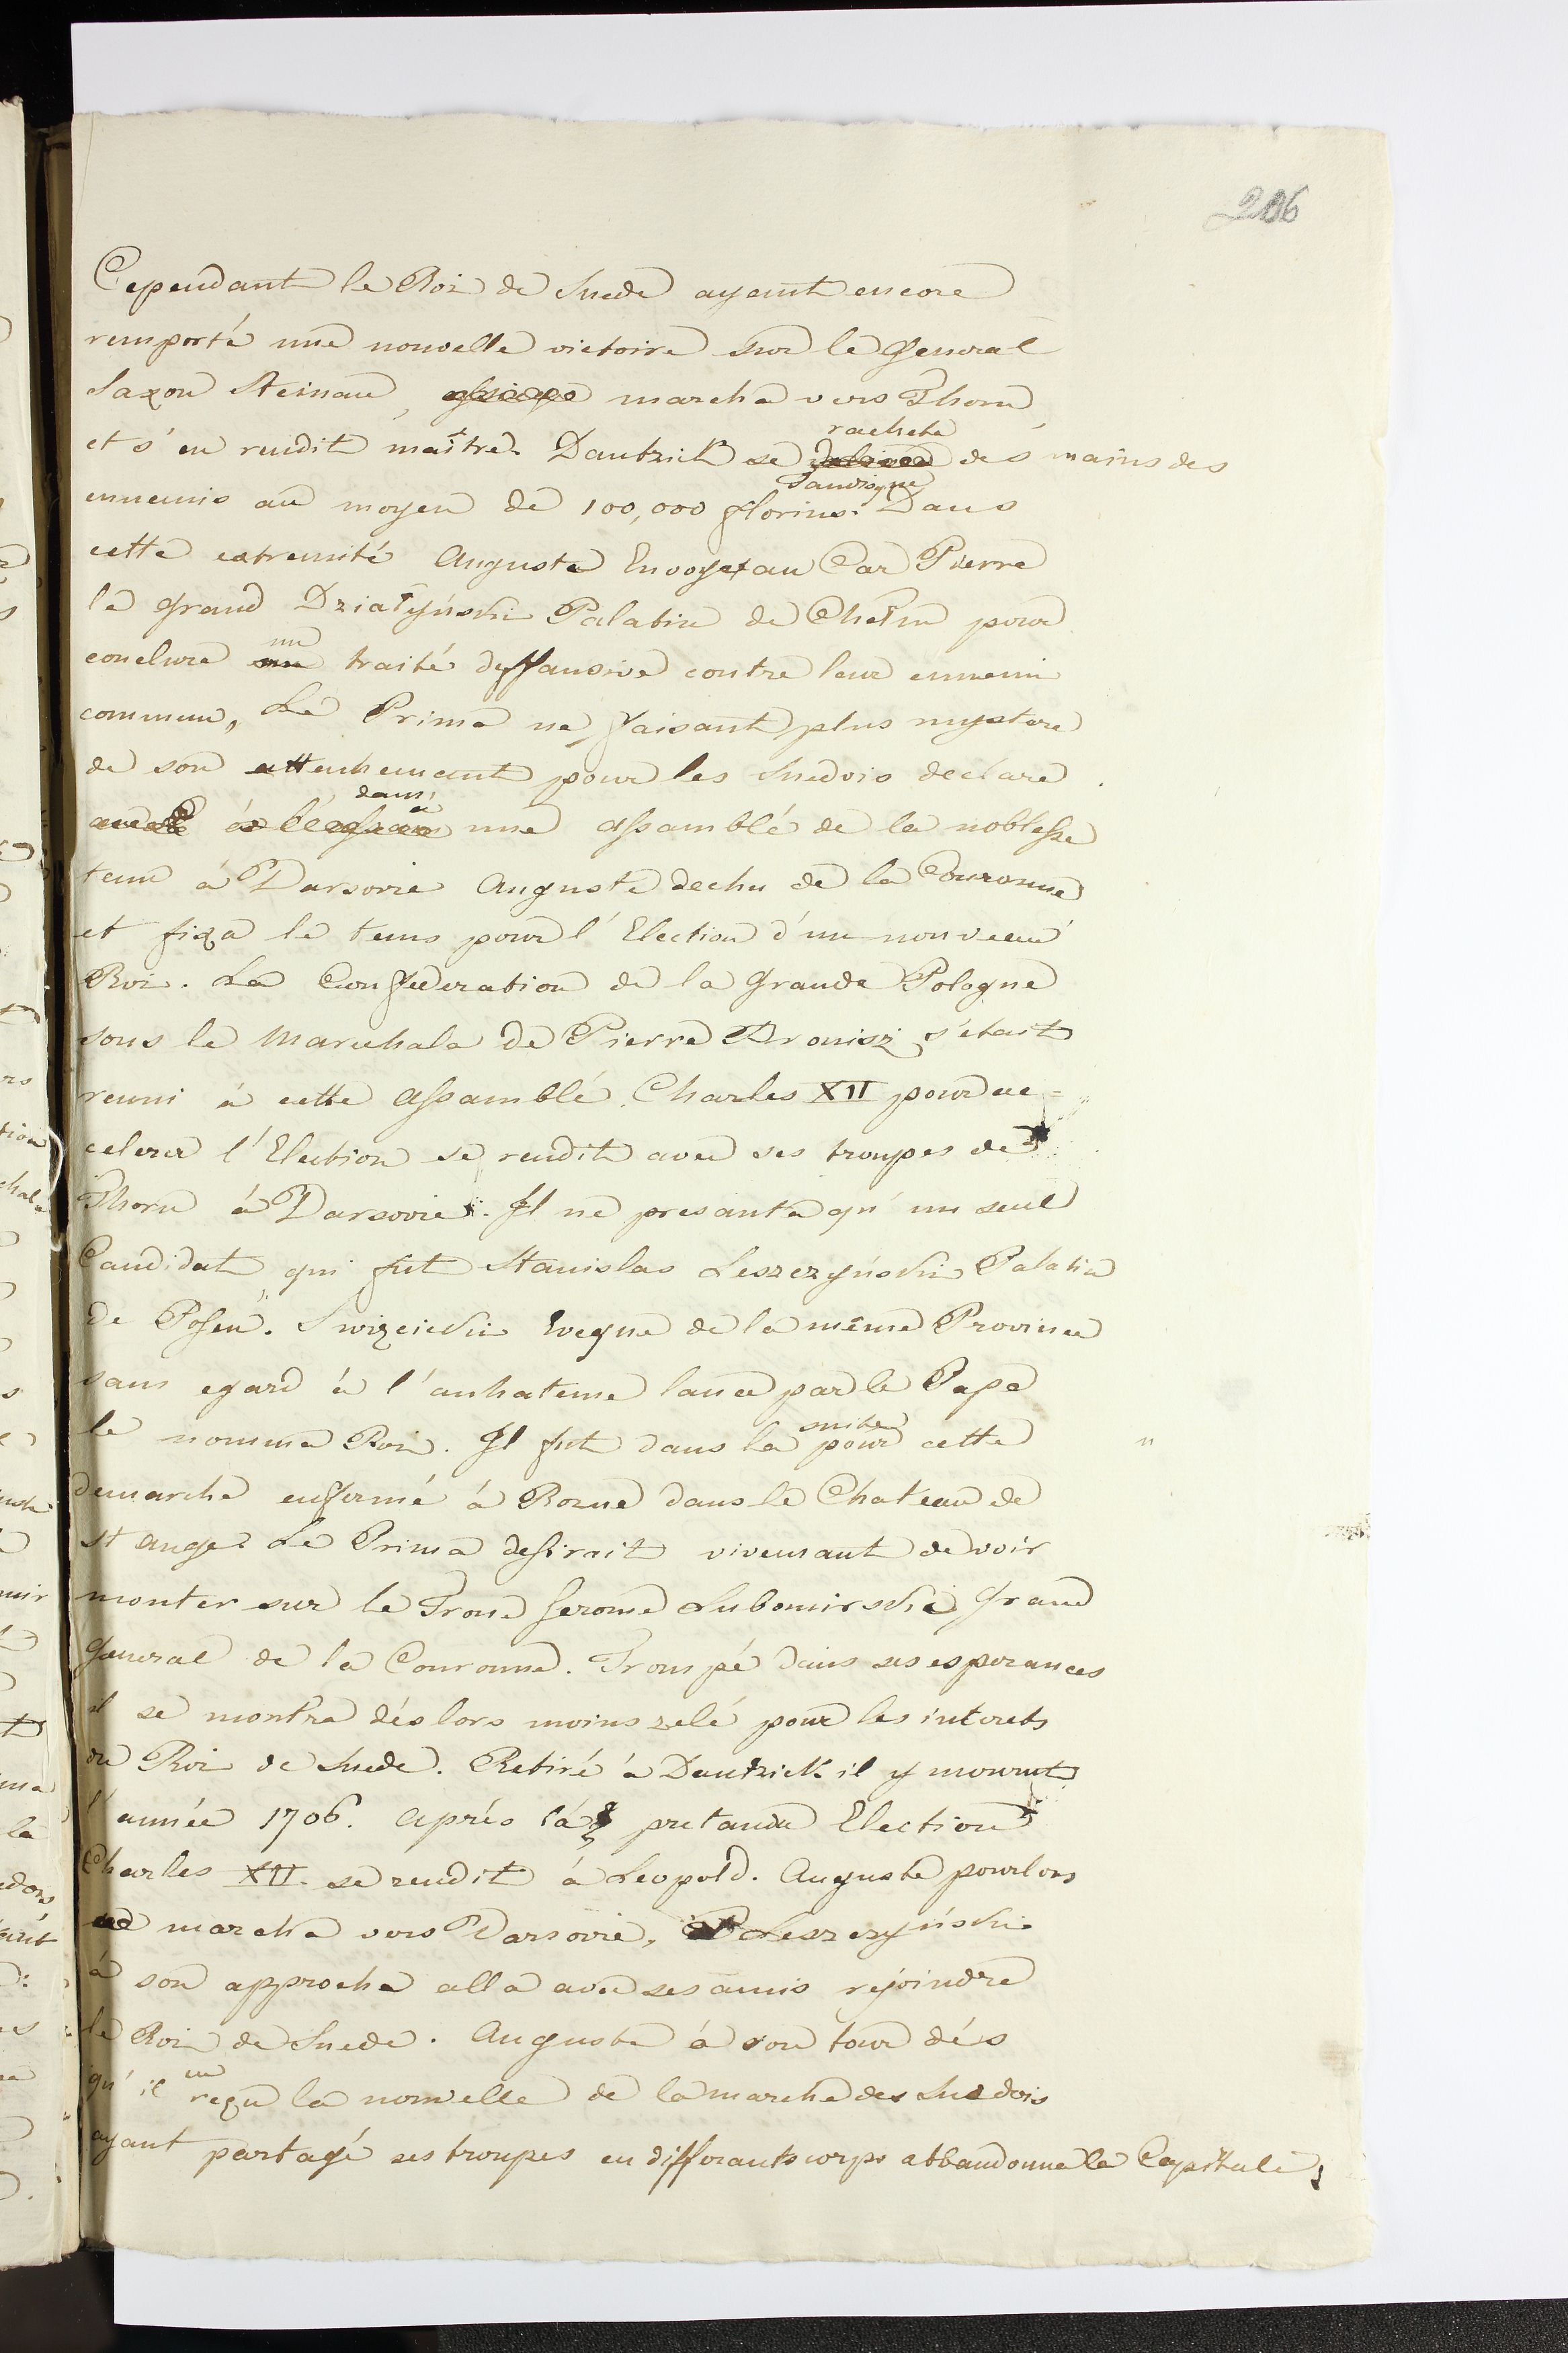 206
Cependant le Roi de Suede ayant encore
remporté une nouvelle victoire sur le General
Saxon Steinau, marcha vers Thorn
et s'en rendit maître. Dantzick se racheta des mains des
ennemis au moyen de 100,000 florins. Dans
cette extremité Auguste Envoye au Car Pierre
le grand Dziatyński Palatin de Chełm pour
conclure un traité deffansive contre leur ennemi
commun, Le Prima ne faisant plus mystere
de son attachemant pour les Suedois declare
dans une assamblé de la noblesse
tenu à Varsovie Auguste dechu de la Couronne
et fixa le tems pour l'Election d'un nouveau
Roi. La Confederation de la Grande Pologne
sous le Marechala de Pierre Bronisz s'etait
reuni à cette Assamblé. Charles XII pour ac=
celerer l'Election se rendit avec ses troupes de
Thorn à Varsovie. Il ne presanta qu'un seul
Candidat qui fut Stanislas Leszczyński Palatin
de Posen. Swięcicki Eveque de la même Province
sans egard à l'anhateme lancé par le Pape
le nomma Roi. Il fut dans la suite pour cette
demarche enfermé à Rome dans le Chateau de
st Ange. Le Prima desirait vivemant de voir
monter sur le Trone Jerome Lubomirski Grand
General de la Couronne. Trompé dans ses esperances
il se montra dés lors moins zelé pour les interets
du Roi de Suede. Retiré à Dantzick il y mourut
l'année 1706. Aprés la pretandu Election
Charles XII. se rendit à Leopold. Auguste pour lors
marcha vers Varsovie, Leszczyński
à son approche alla avec ses amis rejoindre
le Roi de Suede. Auguste à son tour dés
qu'il eu reçu la nouvelle de la marche des Suedois
ayant partagé ses troupes en differants corps abbandonne la Capitale,